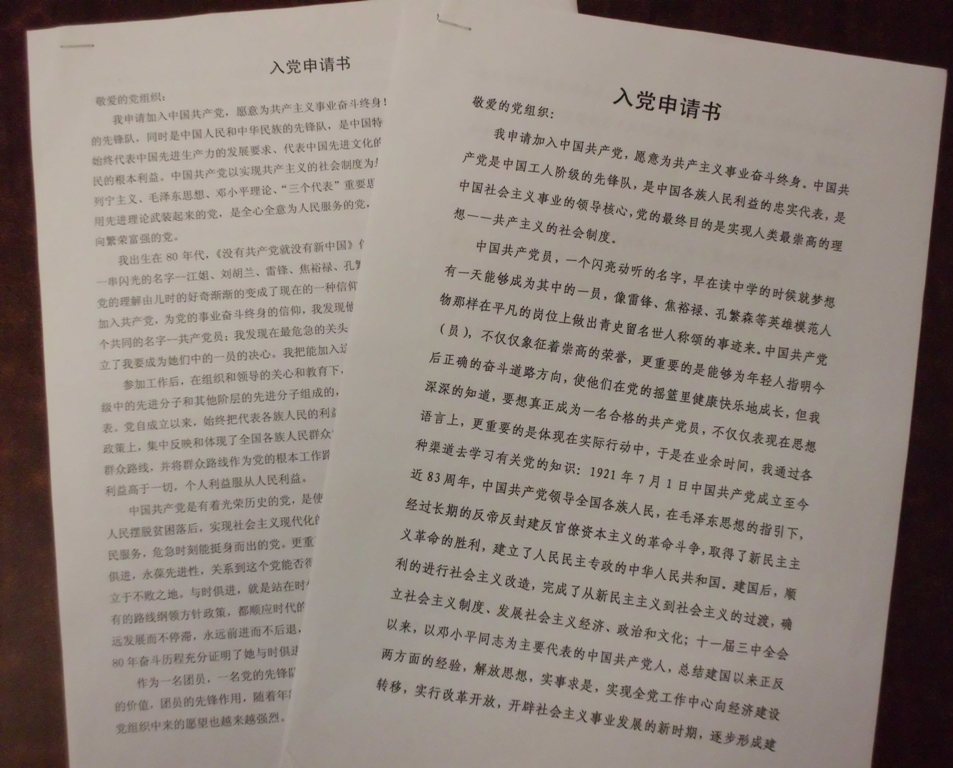 入党申请书
敬爱的党组织：
我申请加入中国共产党，愿意为共产主义事业奋斗终身！
的先锋队，同时是中国人民和中华民族的先锋队，是中国特
始终代表中国先进生产力的发展要求、代表中国先进文化的
民的根本利益。中国共产党以实现共产主义的社会制度为
列宁主义、毛泽东思想、邓小平理论、“三个代表”重要思
用先进理论武装起来的党，是全心全意为人民服务的党，
向繁荣富强的党。
我出生在 80 年代，《没有共产党就没有新中国》
一串闪光的名字—江姐、刘胡兰、雷锋、焦裕禄、孔繁
党的理解由儿时的好奇渐渐的变成了现在的一种信仰
加入共产党，为党的事业奋斗终身的信仰，我发现他
个共同的名字—共产党员；我发现在最危急的关头
立了我要成为她们中的一员的决心。我把能加入这
参加工作后，在组织和领导的关心和教育下，
级中的先进分子和其他阶层的先进分子组成的，
表。党自成立以来，始终把代表各族人民的利益
政策上，集中反映和体现了全国各族人民群众
群众路线，并将群众路线作为党的根本工作路
利益高于一切，个人利益服从人民利益。
中国共产党是有着光荣历史的党，是使
人民摆脱贫困落后，实现社会主义现代化的
民服务，危急时刻能挺身而出的党。更重
俱进，永葆先进性，关系到这个党能否得
立于不败之地。与时俱进，就是站在时
有的路线纲领方针政策，都顺应时代的
远发展而不停滞，永远前进而不后退，
80 年奋斗历程充分证明了她与时俱进
作为一名团员，一名党的先锋队
的价值，团员的先锋作用，随着年
党组织中来的愿望也越来越强烈。
入党申请书
敬爱的党组织：
我申请加入中国共产党，愿意为共产主义事业奋斗终身。中国共
产党是中国工人阶级的先锋队，是中国各族人民利益的忠实代表，是
中国社会主义事业的领导核心，党的最终目的是实现人类最崇高的理
想——共产主义的社会制度。
中国共产党员，一个闪亮动听的名字，早在读中学的时候就梦想
有一天能够成为其中的一员，像雷锋、焦裕禄、孔繁森等英雄模范人
物那样在平凡的岗位上做出青史留名世人称颂的事迹来。中国共产党
（员），不仅仅象征着崇高的荣誉，更重要的是能够为年轻人指明今
后正确的奋斗道路方向，使他们在党的摇篮里健康快乐地成长，但我
深深的知道，要想真正成为一名合格的共产党员，不仅仅表现在思想
语言上，更重要的是体现在实际行动中，于是在业余时间，我通过各
种渠道去学习有关党的知识：1921 年 7 月 1 日中国共产党成立至今
近 83 周年，中国共产党领导全国各族人民，在毛泽东思想的指引下，
经过长期的反帝反封建反官僚资本主义的革命斗争，取得了新民主主
义革命的胜利，建立了人民民主专政的中华人民共和国。建国后，顺
利的进行社会主义改造，完成了从新民主主义到社会主义的过渡，确
立社会主义制度、发展社会主义经济、政治和文化；十一届三中全会
以来，以邓小平同志为主要代表的中国共产党人，总结建国以来正反
两方面的经验，解放思想，实事求是，实现全党工作中心向经济建设
转移，实行改革开放，开辟社会主义事业发展的新时期，逐步形成建